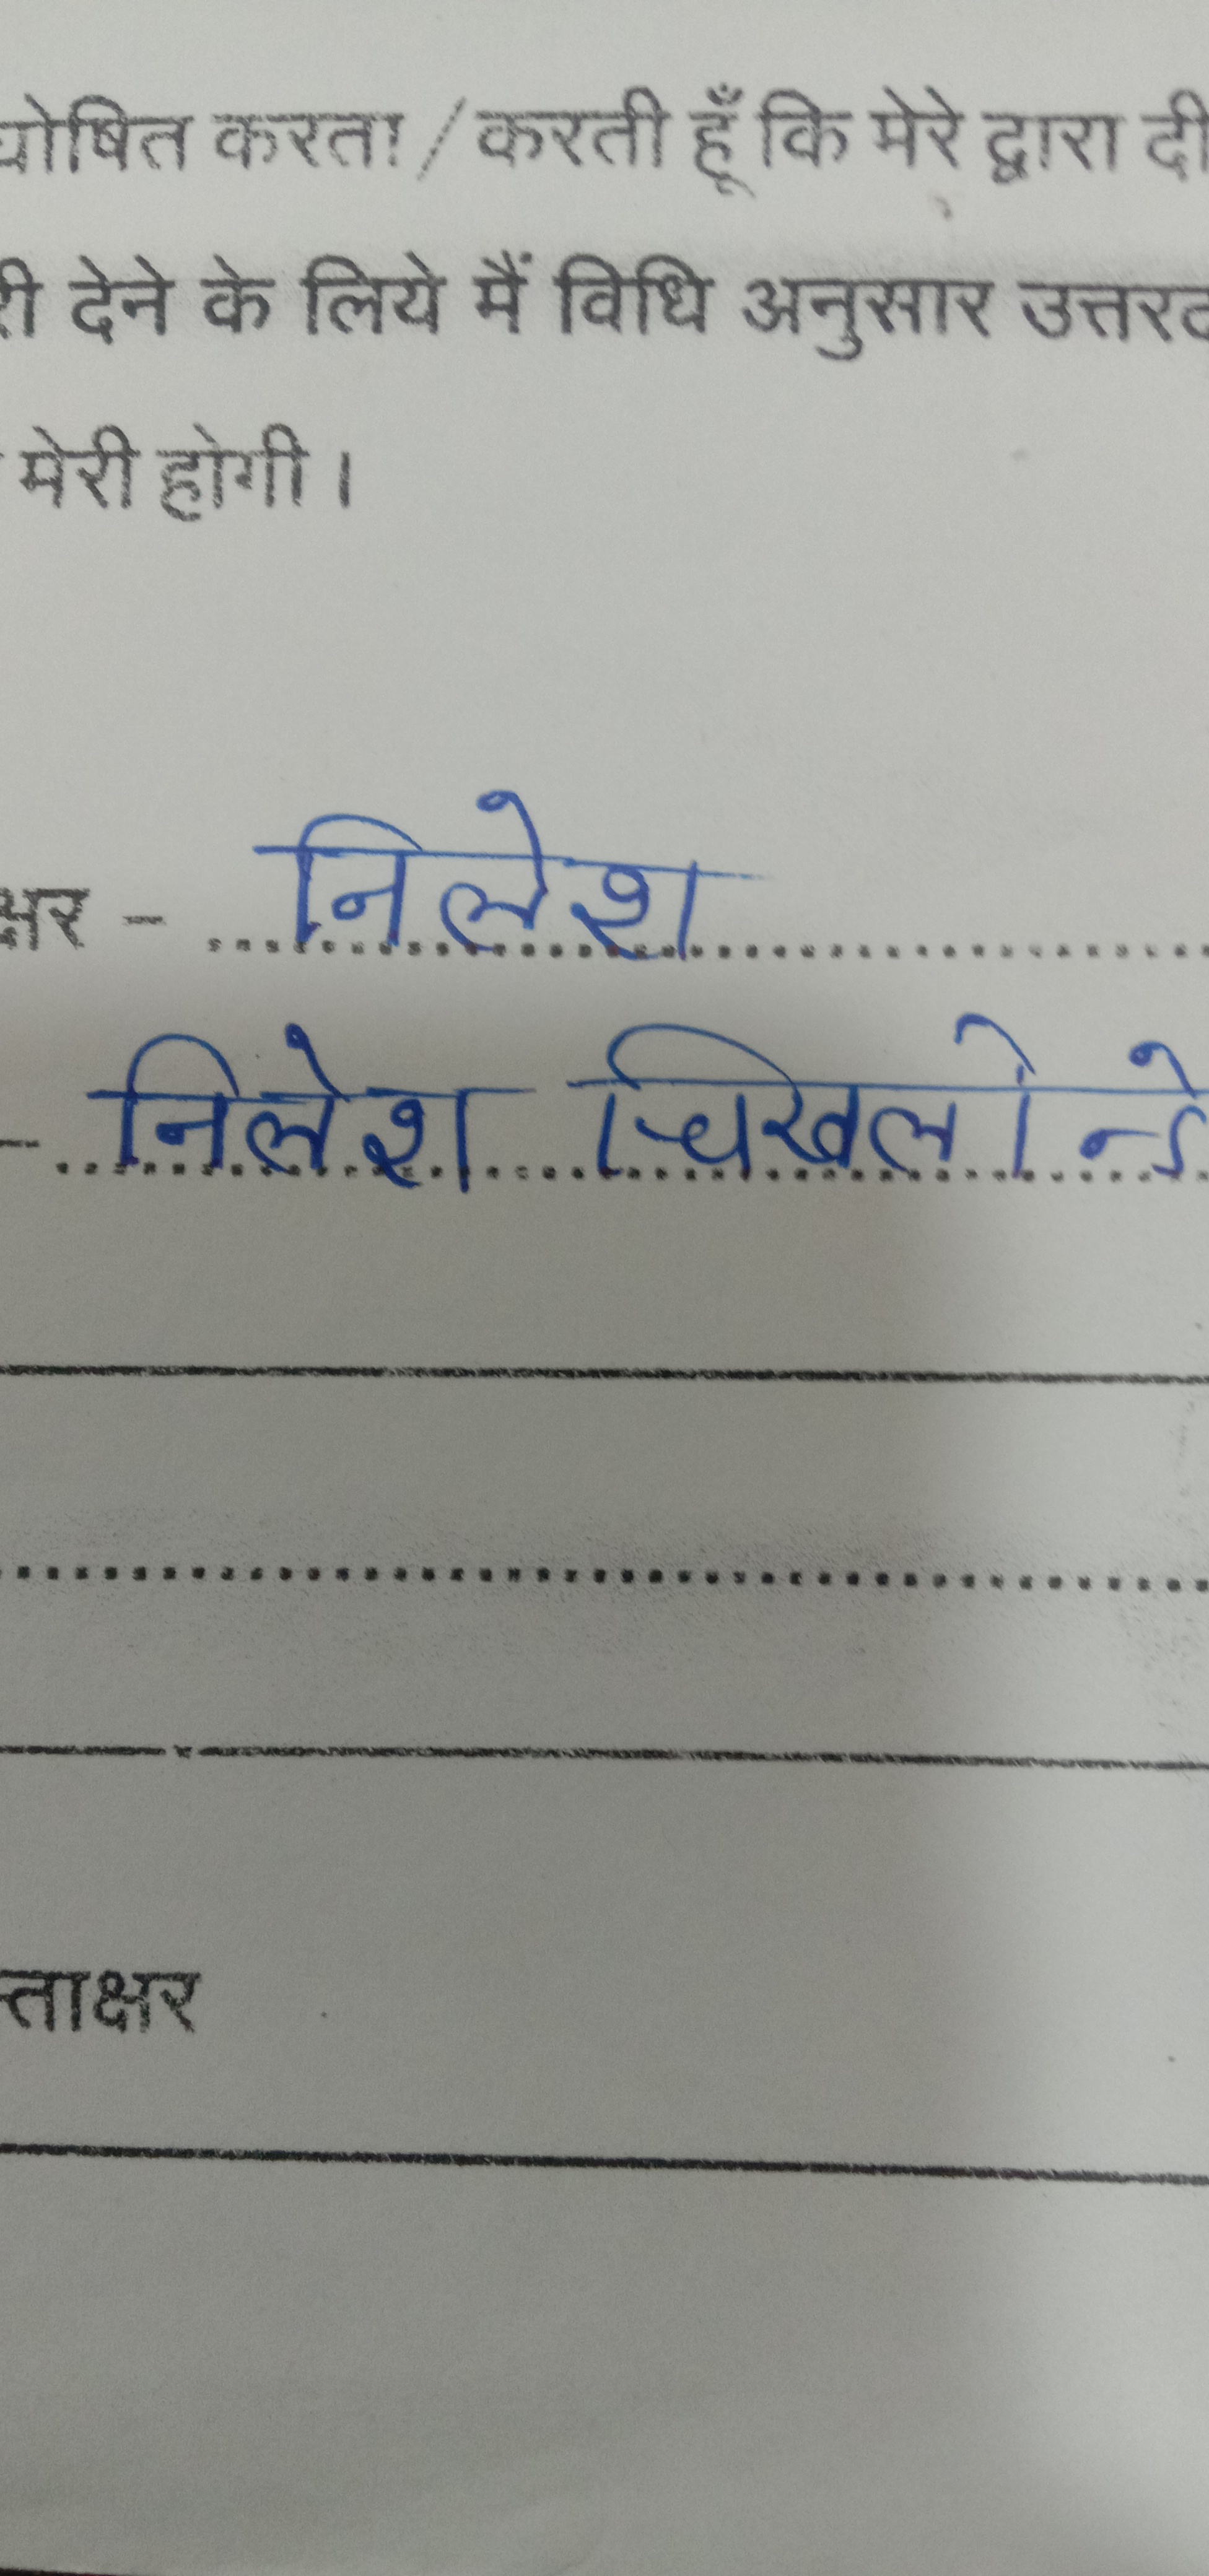 घोषित करता / करती हूँ कि मेरे द्वारा दी
री देने के लिये मैं विधि अनुसार उत्तरद
मेरी होगी।
क्षर - निलेश
- निलेश चिखलोन्डे
स्ताक्षर